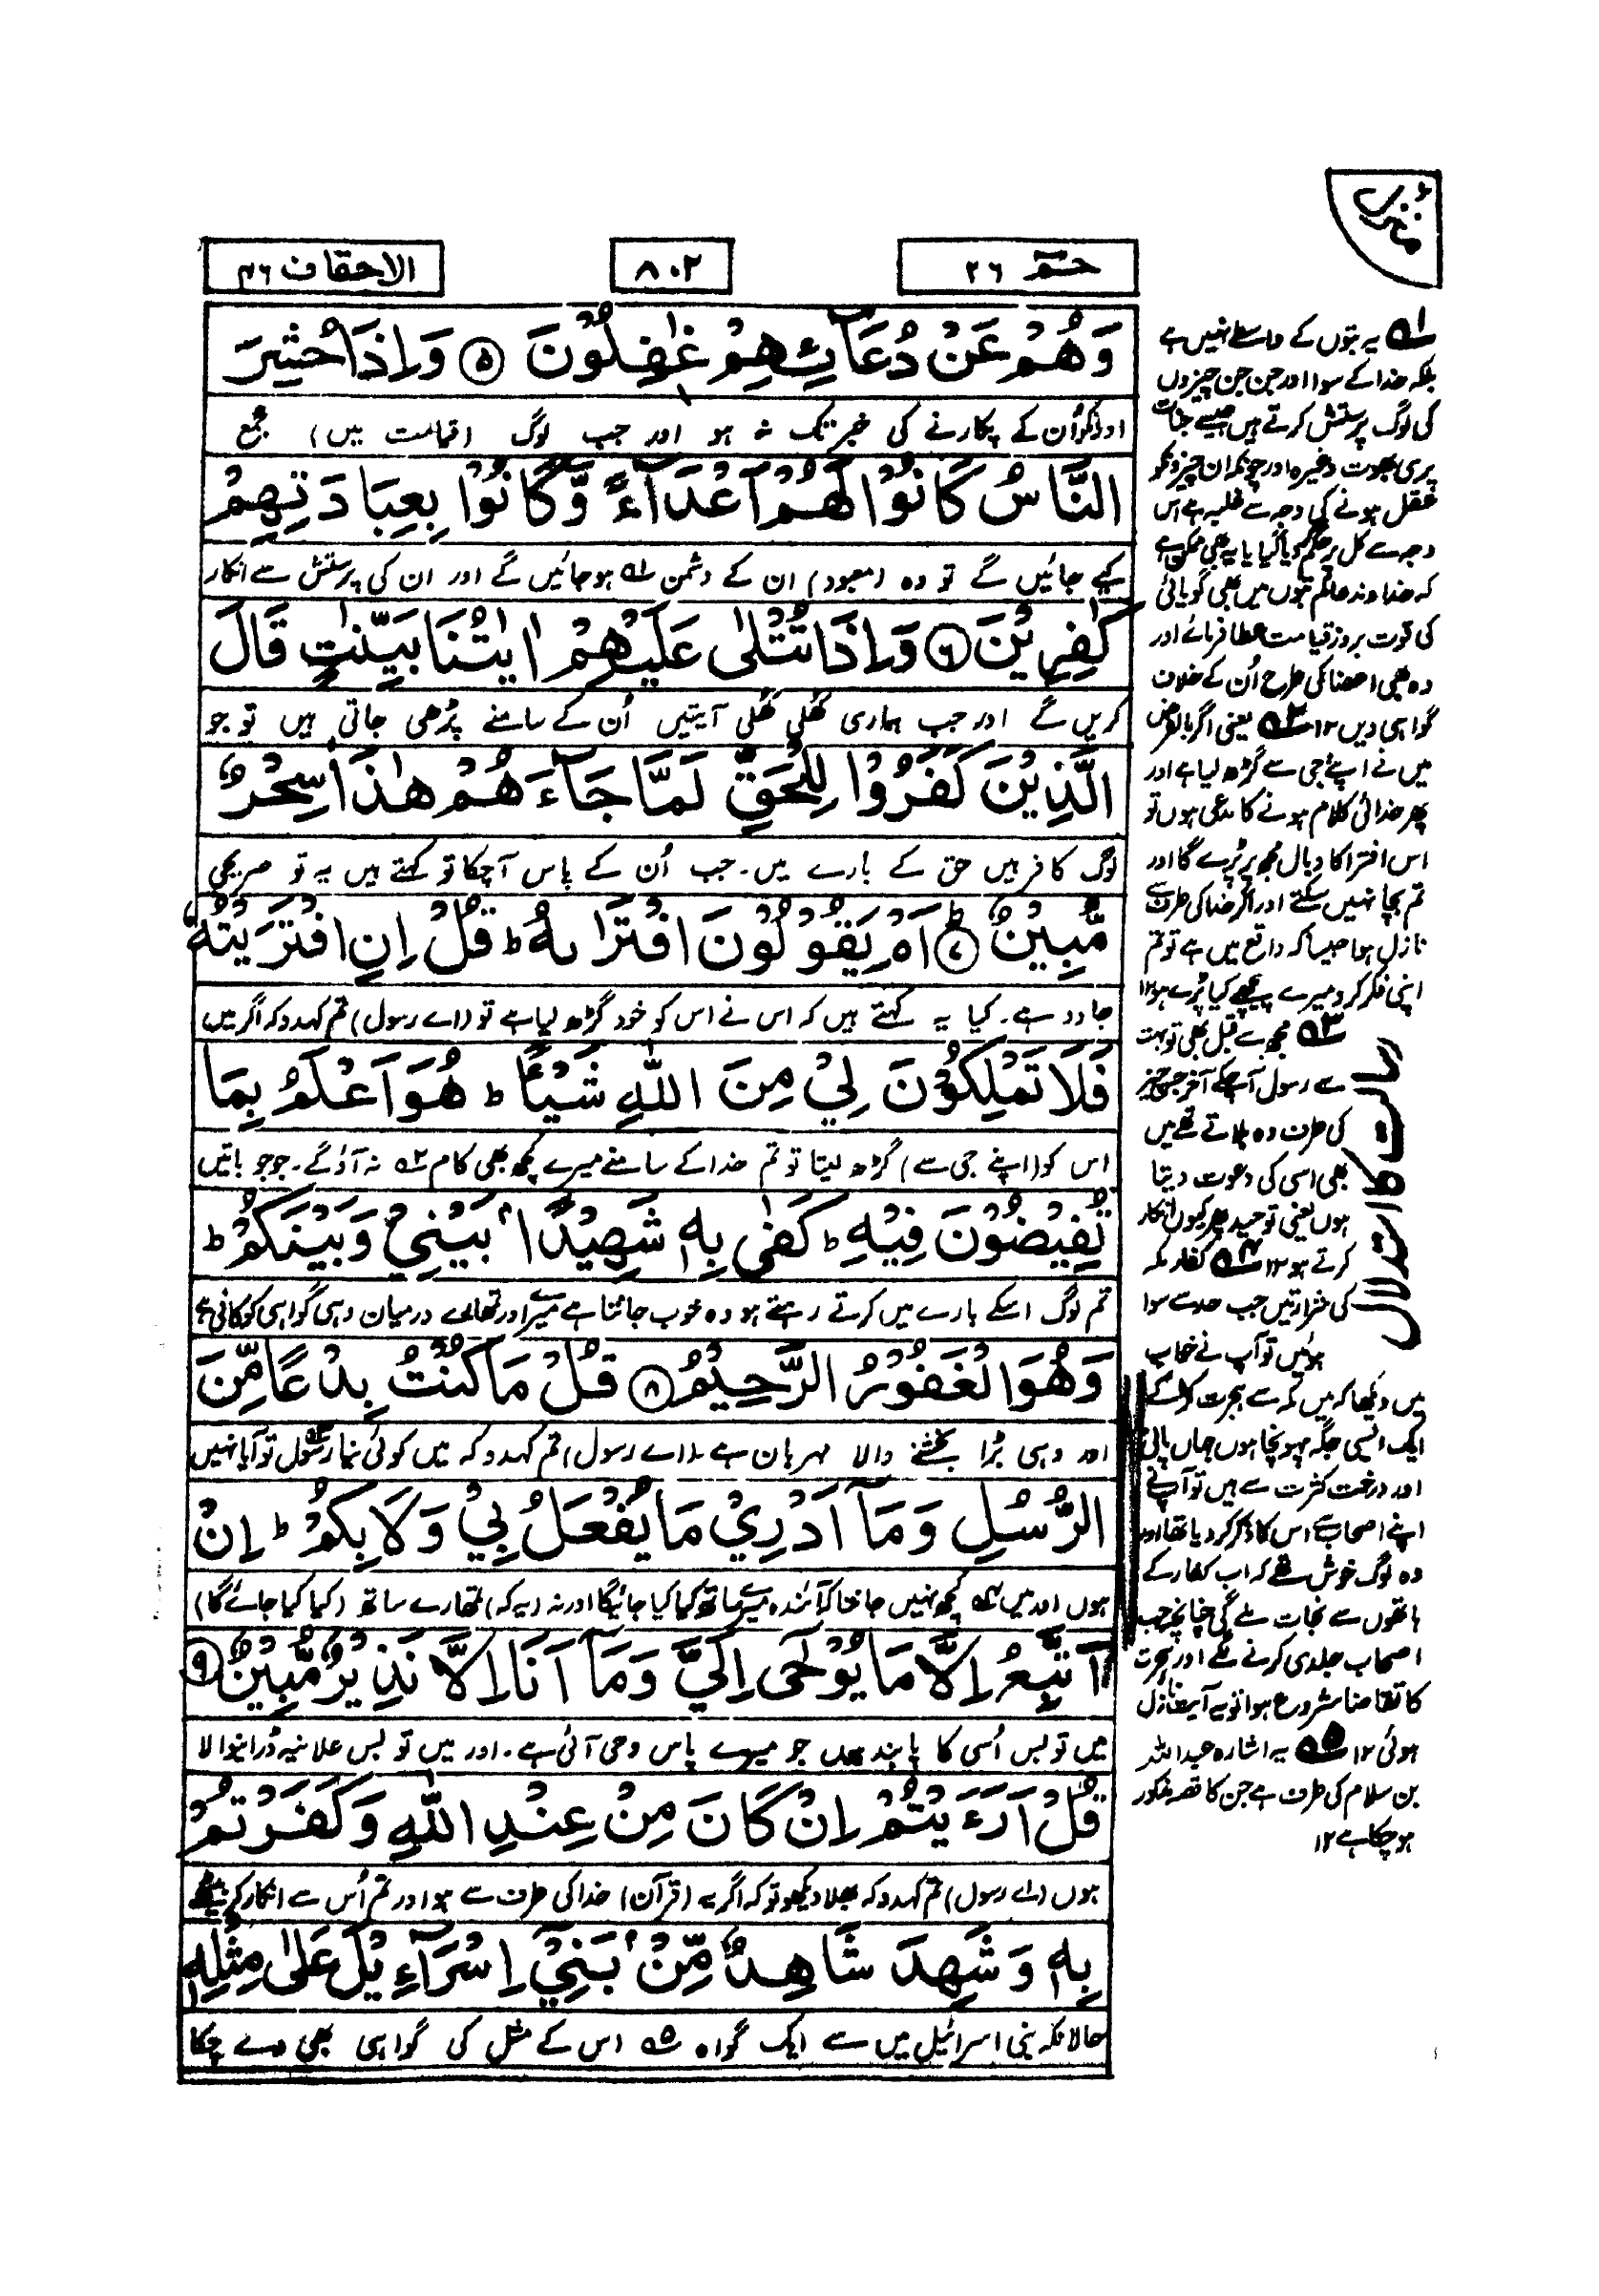 منزل ۶
حٰمٓ ۲۶
۸۰۲
الاحقاف ۴۶
وَهُمْ عَنْ دُعَآئِهِمْ غٰفِلُوْنَ ۵ وَاِذَا حُشِرَ
اور جب لوگ (قیامت میں) جمع
النَّاسُ كَانُوْا لَهُمْ اَعْدَآءً وَّكَانُوْا بِعِبَادَتِهِمْ
کیے جائیں گے تو وہ (معبود) ان کے دشمن ۱ ہو جائیں گے اور ان کی پرستش سے انکار
كٰفِرِيْنَ ۶ وَاِذَا تُتْلٰى عَلَيْهِمْ اٰيٰتُنَا بَيِّنٰتٍ قَالَ
کریں گے اور جب ہماری کھلی کھلی آیتیں اُن کے سامنے پڑھی جاتی ہیں تو جو
الَّذِيْنَ كَفَرُوْا لِلْحَقِّ لَمَّا جَآءَهُمْ هٰذَا سِحْرٌ
لوگ کافر ہیں حق کے بارے میں۔ جب اُن کے پاس آچکا تو کہتے ہیں یہ تو صریحی
مُّبِيْنٌ ۷ اَمْ يَقُوْلُوْنَ افْتَرٰىهُ ط قُلْ اِنِ افْتَرَيْتُهٗ
جادو ہے۔ کیا یہ کہتے ہیں کہ اس نے اس کو خود گڑھ لیا ہے تو (اے رسول) تم کہدو کہ اگر میں
فَلَا تَمْلِكُوْنَ لِيْ مِنَ اللّٰهِ شَيْـًٔا ط هُوَ اَعْلَمُ بِمَا
اس کو (اپنے جی سے) گڑھ لیتا تو تم خدا کے سامنے میرے کچھ بھی کام ۲ نہ آؤ گے۔ جو جو باتیں
تُفِيْضُوْنَ فِيْهِ ط كَفٰى بِهٖ شَهِيْدًاۢ بَيْنِيْ وَبَيْنَكُمْ ط
تم لوگ اسکے بارے میں کرتے رہتے ہو وہ خوب جانتا ہے میرے اور تمھارے درمیان وہی گواہی کو کافی ہے
وَهُوَ الْغَفُوْرُ الرَّحِيْمُ ۸ قُلْ مَا كُنْتُ بِدْعًا مِّنَ
اور وہی بڑا بخشنے والا مہربان ہے (اے رسول) تم کہدو کہ میں کوئی نیا رسول ۳ تو آیا نہیں
الرُّسُلِ وَمَآ اَدْرِيْ مَا يُفْعَلُ بِيْ وَلَا بِكُمْ ط اِنْ
ہوں اور میں ۴ کچھ نہیں جانتا کہ آئندہ میرے ساتھ کیا کیا جائیگا اور نہ (یہ کہ) تمھارے ساتھ (کیا کیا جائے گا)
اَتَّبِعُ اِلَّا مَا يُوْحٰٓى اِلَيَّ وَمَآ اَنَا اِلَّا نَذِيْرٌ مُّبِيْنٌ ۹
میں تو بس اُسی کا پابند ہوں جو میرے پاس وحی آئی ہے۔ اور میں تو بس علانیہ ڈرانیوالا
قُلْ اَرَءَيْتُمْ اِنْ كَانَ مِنْ عِنْدِ اللّٰهِ وَكَفَرْتُمْ
ہوں (اے رسول) تم کہدو کہ بھلا دیکھو تو کہ اگر یہ (قرآن) خدا کی طرف سے ہو اور تم اُس سے انکار کر بیٹھے
بِهٖ وَشَهِدَ شَاهِدٌ مِّنْۢ بَنِيْٓ اِسْرَآءِيْلَ عَلٰى مِثْلِهٖ
حالانکہ بنی اسرائیل میں سے ایک گواہ ۵ اس کے مثل کی گواہی بھی دے چکا
۱ یہ بتوں کے واسطے نہیں ہے
بلکہ خدا کے سوا اور جن جن چیزوں
کی لوگ پرستش کرتے ہیں جیسے جنات
پری بھوت وغیرہ اور چونکہ ان چیزونکو
عقل ہونے کی وجہ سے غلبہ ہے اس
وجہ سے کل پر حکم کیا گیا یا یہ بھی ممکن ہے
کہ خداوند عالم بتوں میں بھی گویائی
کی قوت بروز قیامت عطا فرمائے اور
وہ بھی اعضا کی طرح اُن کے خلاف
گواہی دیں ۱۲ ۲ یعنی اگر بالفرض
میں نے اپنے جی سے گڑھ لیا ہے اور
پھر خدائی کلام ہونے کا مدعی ہوں تو
اس افترا کا وبال مجھ پر پڑے گا اور
تم بچا نہیں سکتے اور اگر خدا کی طرف سے
نازل ہوا جیسا کہ واقع میں ہے تو تم
اپنی فکر کرو میرے پیچھے کیا پڑے ہو ۱۲
۳ مجھ سے قبل بھی تو بہت
سے رسول آچکے آخر جس چیز
کی طرف وہ بلاتے تھے میں
بھی اسی کی دعوت دیتا
ہوں یعنی توحید پھر کیوں انکار
کرتے ہو ۱۲ ۴ کفار مکہ
کی شرارتیں جب حد سے سوا
ہوئیں تو آپ نے خواب
میں دیکھا کہ میں مکہ سے ہجرت کر کے
ایک ایسی جگہ پہونچا ہوں جہاں پانی
اور درخت کثرت سے ہیں تو آپ نے
اپنے اصحاب سے اس کا ذکر کر دیا تھا اور
وہ لوگ خوش تھے کہ اب کفار کے
ہاتھوں سے نجات ملے گی چنانچہ جب
اصحاب جلدی کرنے لگے اور ہجرت
کا تقاضا شروع ہوا تو یہ آیت نازل
ہوئی ۱۲ ۵ یہ اشارہ عبداللہ
بن سلام کی طرف ہے جن کا قصہ مذکور
ہو چکا ہے ۱۲